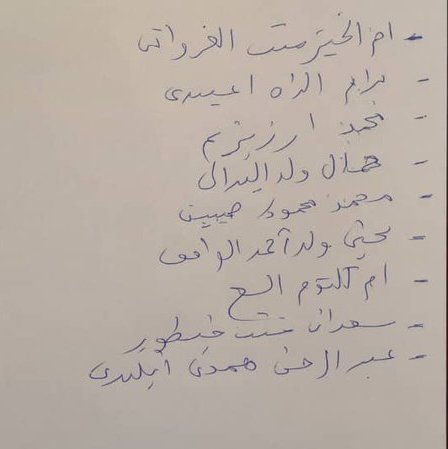 - ام الخير منت الفرواتي
- مرام الداه اعبيدي
- محمد ارزيزيم
- جمال ولد اليدالي
- محمد محمود حبيب
- يحي ولد أحمد الواقف
- ام كلثوم السع
- سعدان منت خيطور
- عبد الرحمن حمدي انكيدي